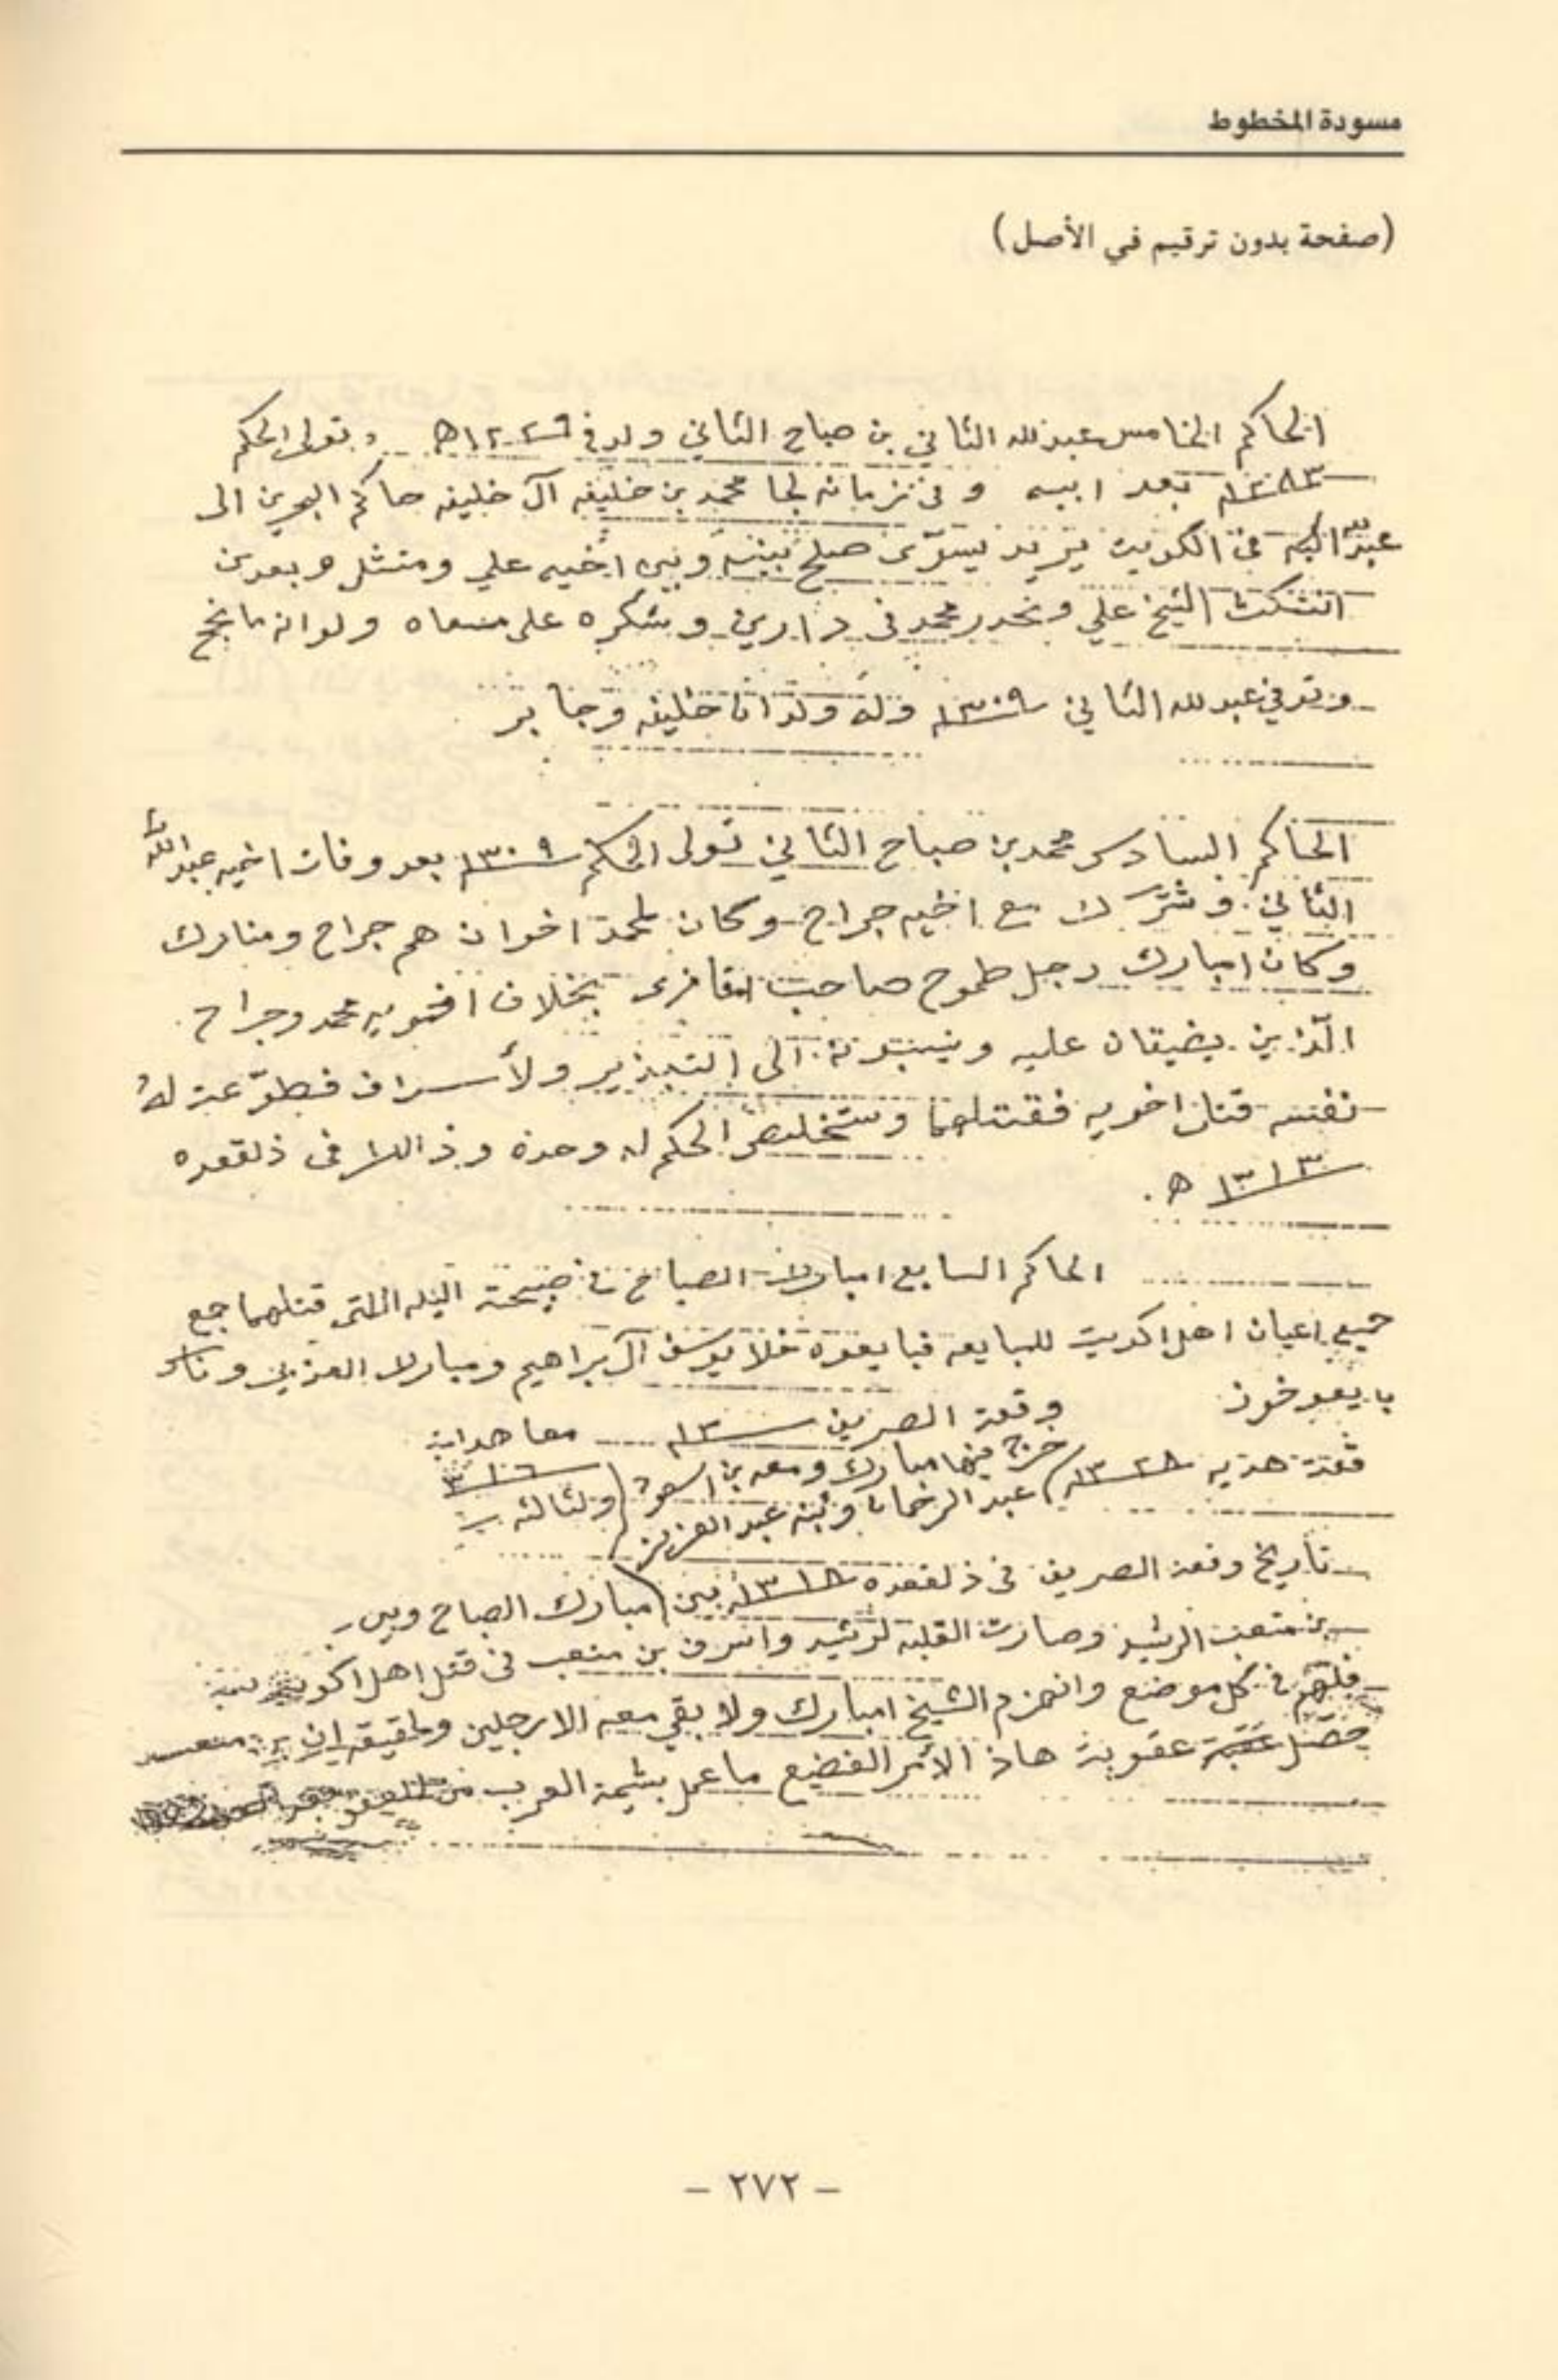 مسودة المخطوط
(صفحة بدون ترقيم في الأصل)
الحاكم الخامس عبدلله الثاني بن صباح الثاني ولد في ١٢٢٩ه وتولى الحكم
١٢٨٣ بعد ابيه وفي زمانه لجا محمد بن خليفه آل خليفه حاكم البحرين الى
عبدلله في الكويت يريد يسوّى صلح بينه وبين اخيه علي ومتثل وبعدين
الشيخ علي محمد في دارين وشكره على مسعاه ولوانه ما نجح
وتوفي عبدلله الثاني ١٣٠٩ وله ولدان خليفه وجابر
الحاكم السادس محمد بن صباح الثاني تولى الحكم ١٣٠٩ بعد وفات اخيه عبدالله
الثاني وشترك مع اخيه جراح وكان لمحمد اخوان هم جراح ومبارك
وكان امبارك رجل طموح صاحب بخلاف اخويه محمد وجراح
الّذين يضيقان عليه وينسبونه الى التبذير ولأسراف فطوّعت له
نفسه قتل اخويه فقتلهما وستخلص الحكم له وحده وذالك في ذلقعده
١٣١٣ ه.
الحاكم السابع امبارك الصباح في صبيحة اليله اللتي قتلهما جمع
جميع اعيان اهل اكويت للبايعه فبايعوه خلا يوسف آل براهيم ومبارك العذبي وناس
بايعو خوف
وقعة الصريف ١٣ معاهدات
٣١٦
وقعة هديه ١٣٢٨ خرج فيها مبارك ومعه بن سعود
عبدالرحمان وبنه عبدالعزيز ولثالثه
تأريخ وقعة الصريف في ذلقعده ١٣١٨ بين امبارك الصباح وبين
بن متعب الرشيد وصارت القلبه لرشيد واسرف بن متعب في قتل اهل اكويت
في كل موضع وانهزم الشيخ امبارك ولا بقي معه الا رجلين ولحقيقه ان بن متعب
حصل عقوبة هاذ الأمر الفضيع ما عمل بشيمة العرب من
- ٢٧٢ -